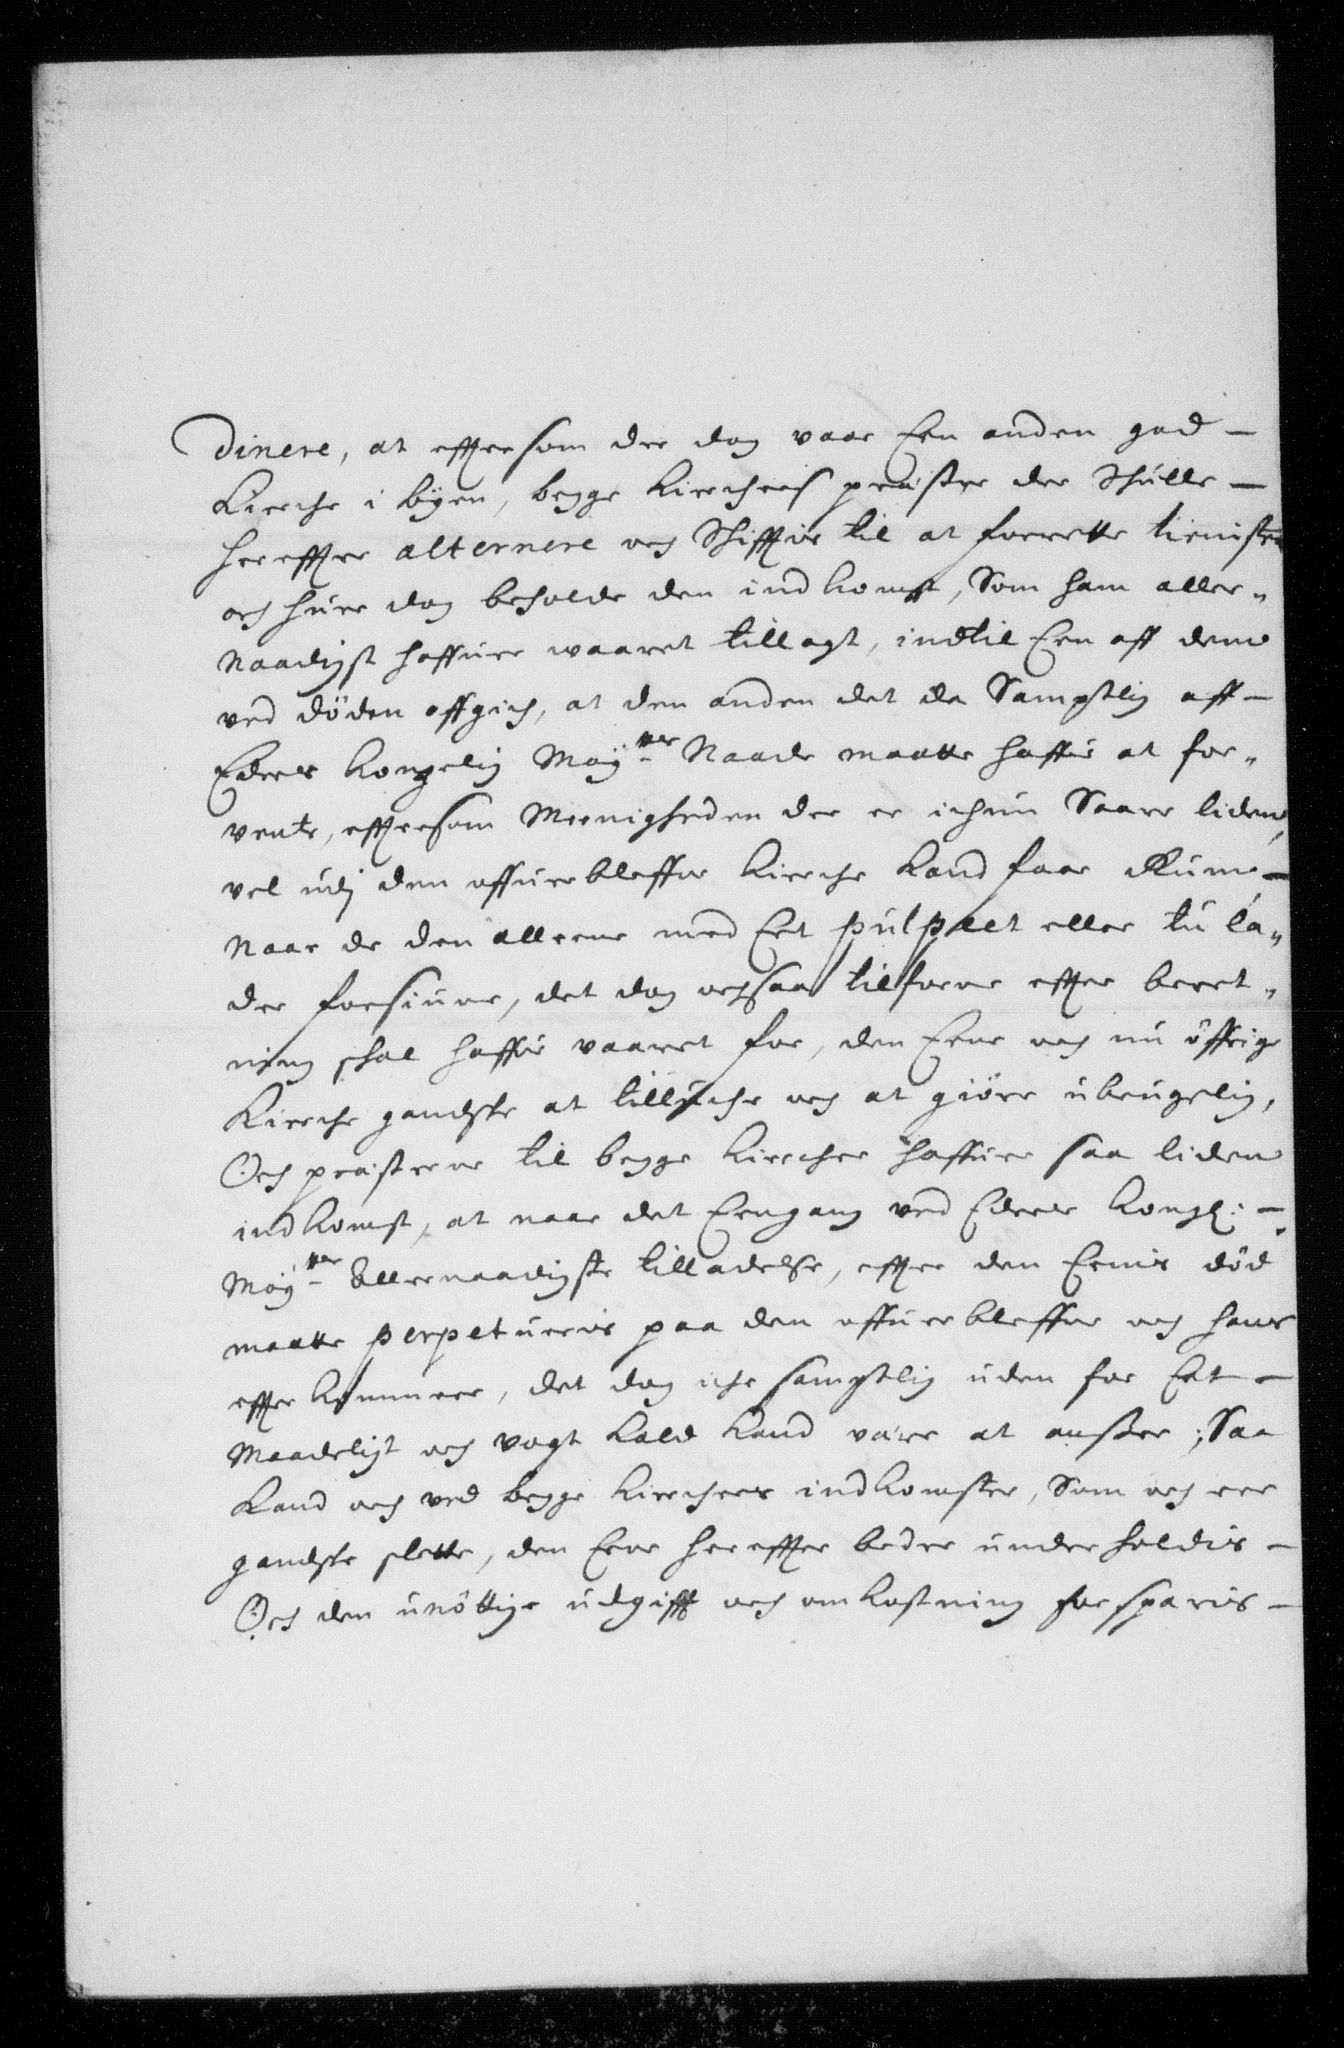 dinere, at effter som der dog vaar Een anden god
Kierche i byen, begge Kierchers præster der Skulle
her effter alternere och Skifftis til at forrette tienisten
och huer dog beholde den indkomst, Som ham aller„
Naadigst haffuer waaret tillagt, indtil Een aff dem
ved döden affgich, at den anden det da Samptlig aff
Eders Kongelig Maÿ:tts Naade maatte haffue at for„
vente, effter som Meenigheden der er ichun Saare liden,
vel udj den offuerbleffne Kierche Kand faae Rum
Naar de den alleene med Eet pulpæet eller tu la„
der forsiune, det dog ochsaa tilforne effter beret„
ning skal haffue vaaret for, den Eene och nu öffrige
Kierche gandske at tilluche och at giöre ubrugelig,
Och præsterne til begge Kiercher haffuer saa liden
indkomst, at naar det Eengang ved Eders Kongl:
Maÿ:tts Allernaadigste tilladelse, effter den Eenis död
maatte perpetueris paa den offuerbleffne och hans
effterkommere, det dog iche samptlig uden for Eet
Maadeligt och ringe Kald Kand være at ansee; Saa
Kand och ved begge Kierchers indkomster, Som och ere
gandske slette, den Eene her effter bedre underholdis
Och den unöttige udgifft och omkostning forsparis